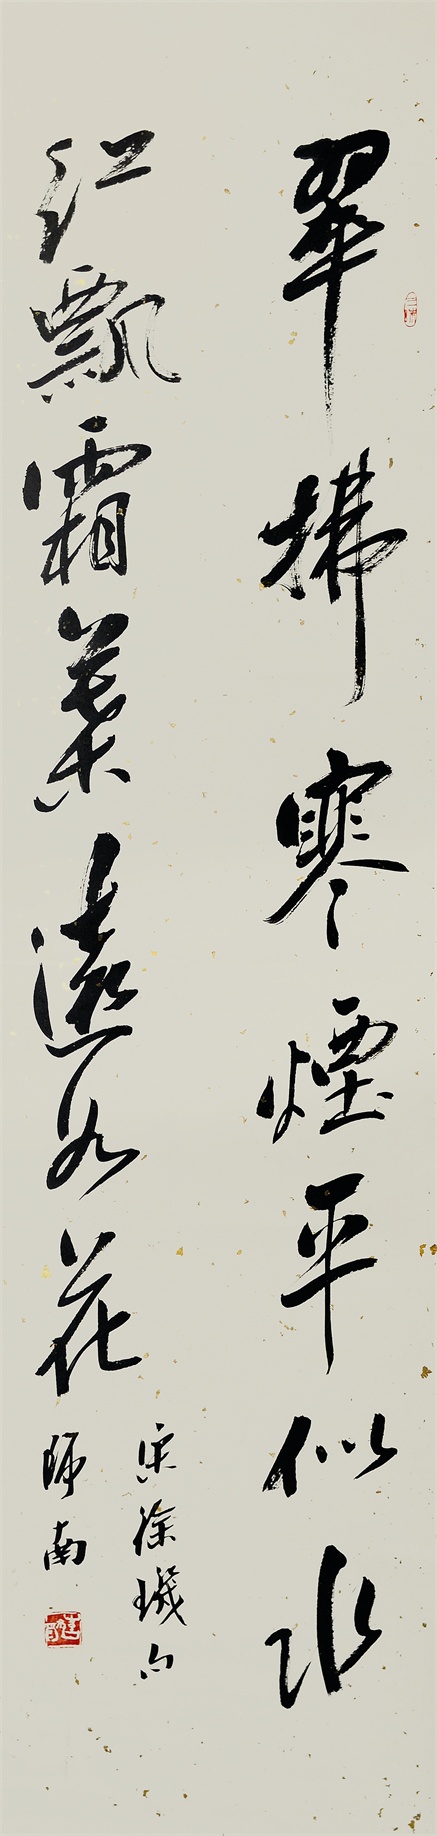 翠拂寒煙平似水
紅飄霜葉遠如花
宋徐璣句
師南